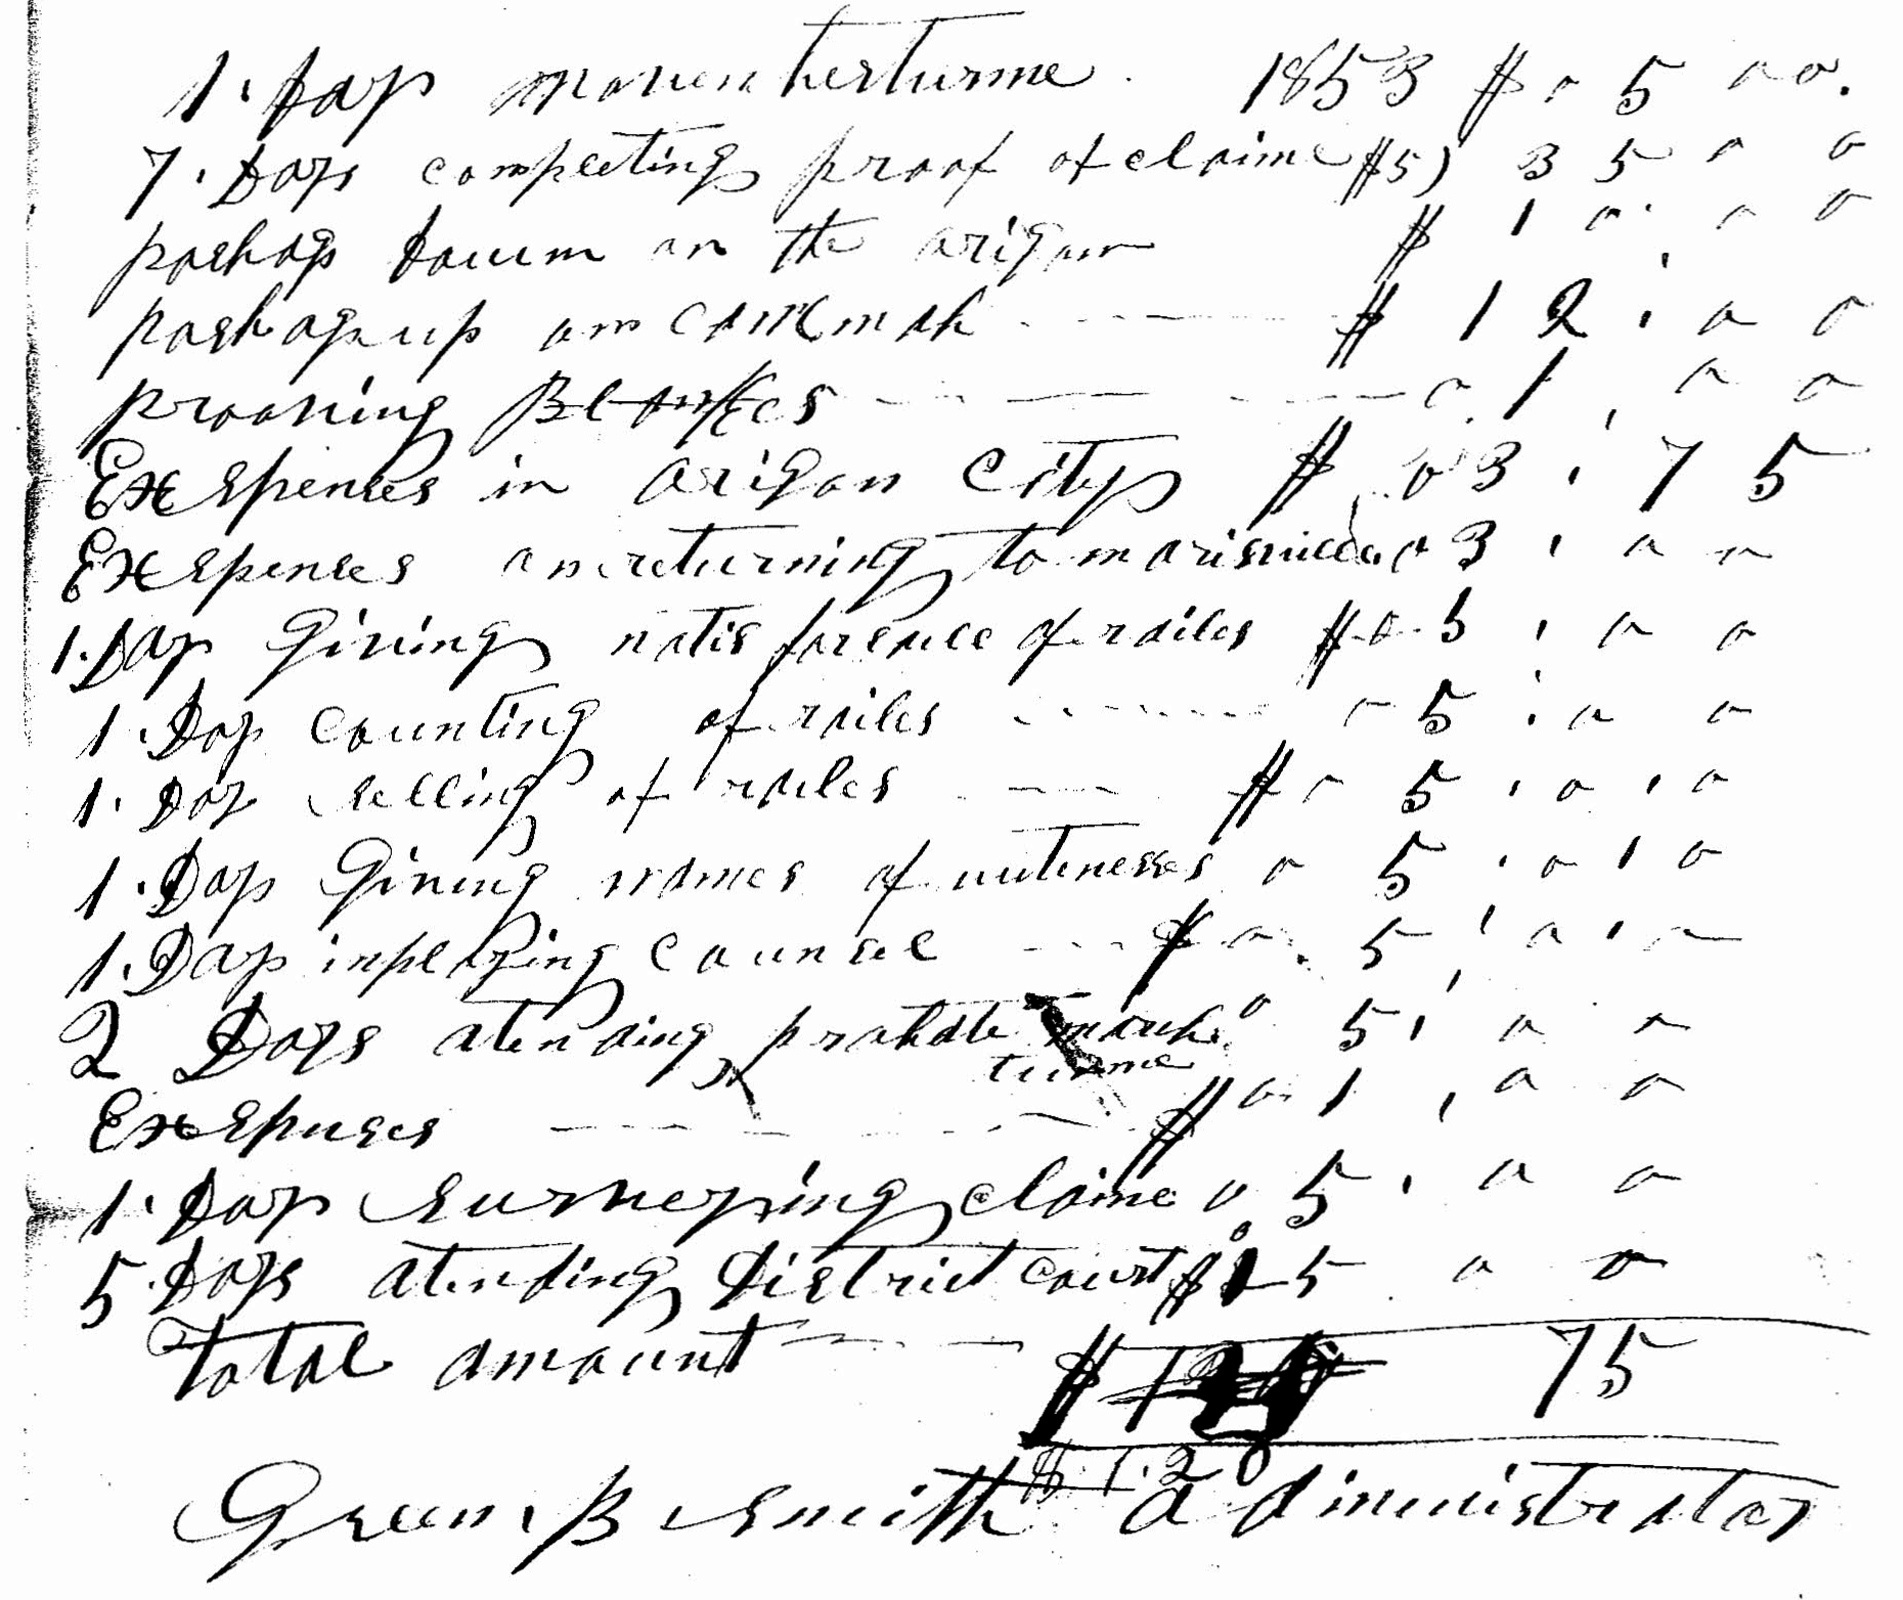 1. Day November turme 1853 $ 0 5 00.
7. Days compleeting proof of claime $5) 3 5 0 0
pashag down on the arigon $ 1 0. 0 0
pashag up on $ 1 2, 0 0
prooning Blankes 0 1, 0 0
Exspenses in Arigon City $ 0 3, 7 5
Exspenses on returning to marisville 0 3, 0 0
1. Day Giving notis for saile of railes $ 0 5, 0 0
1. Day Counting of railes 0 5, 0 0
1. Day selling of railes $ 0 5, 0, 0
1. Day Giving names of wittnesses 0 5, 0, 0
1. Day inploying Counsel $ 0. 5, 0, 0
2 Days atending probate march 0 5, 0 0
turme
Exspenses $ 0 1, 0 0
1. Day surveying claime 0 5, 0 0
5 Days atending District court $ 2 5 0 0
Total amount $ 75
$ 1 2 8
Green. B Smith Administrator